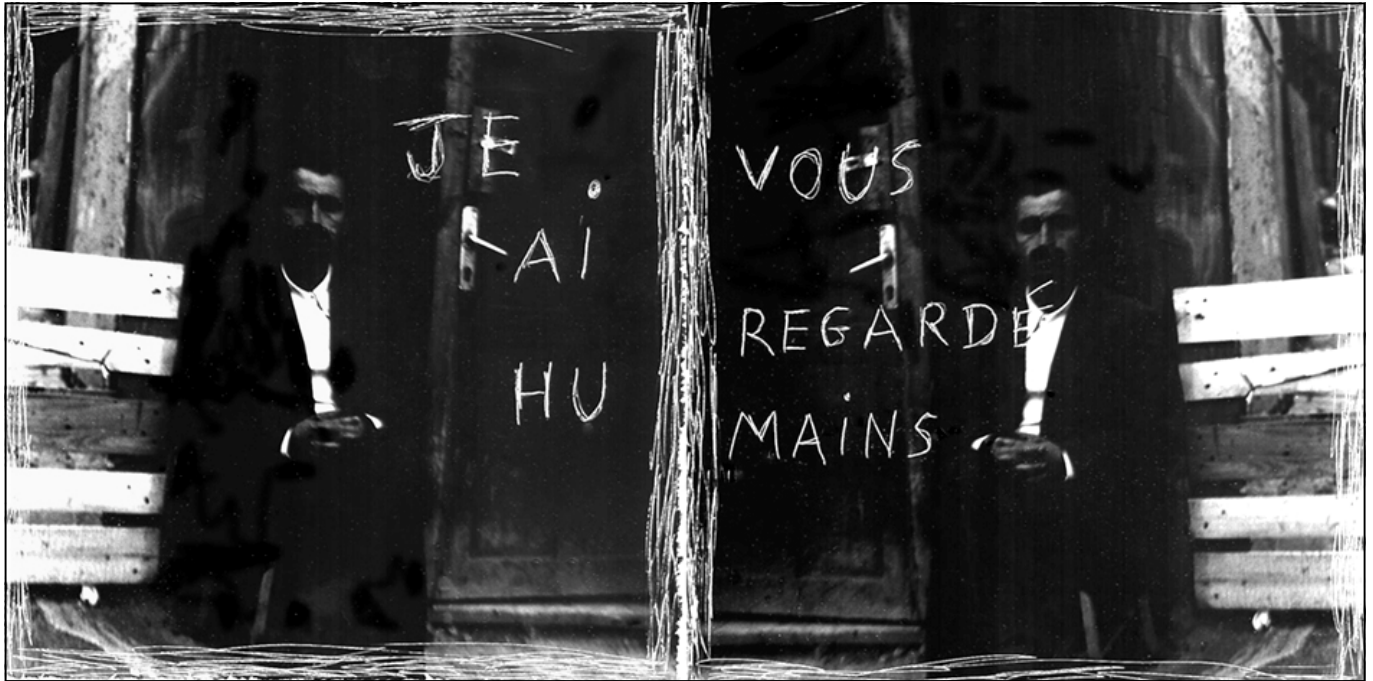 JE VOUS
Ai REGARDÉ
HU MAiNS